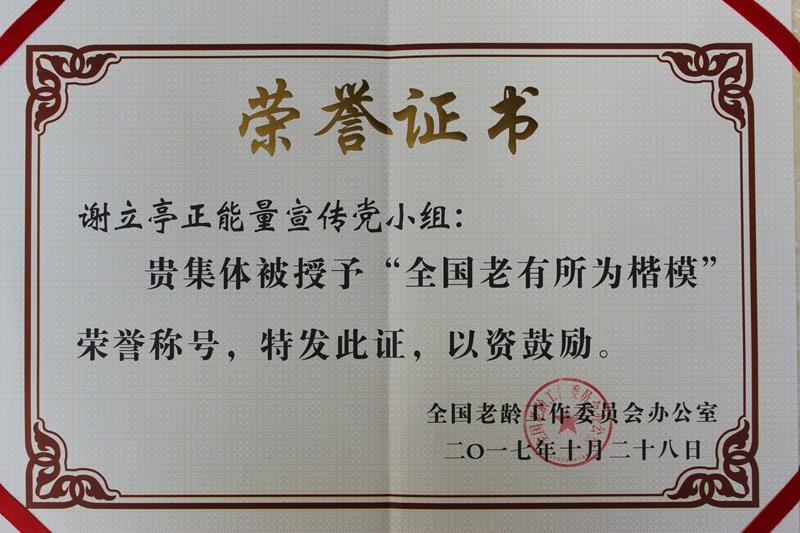 荣誉证书
谢立亭正能量宣传党小组：
贵集体被授予“全国老有所为楷模”
荣誉称号，特发此证，以资鼓励。
全国老龄工作委员会办公室
二〇一七年十月二十八日